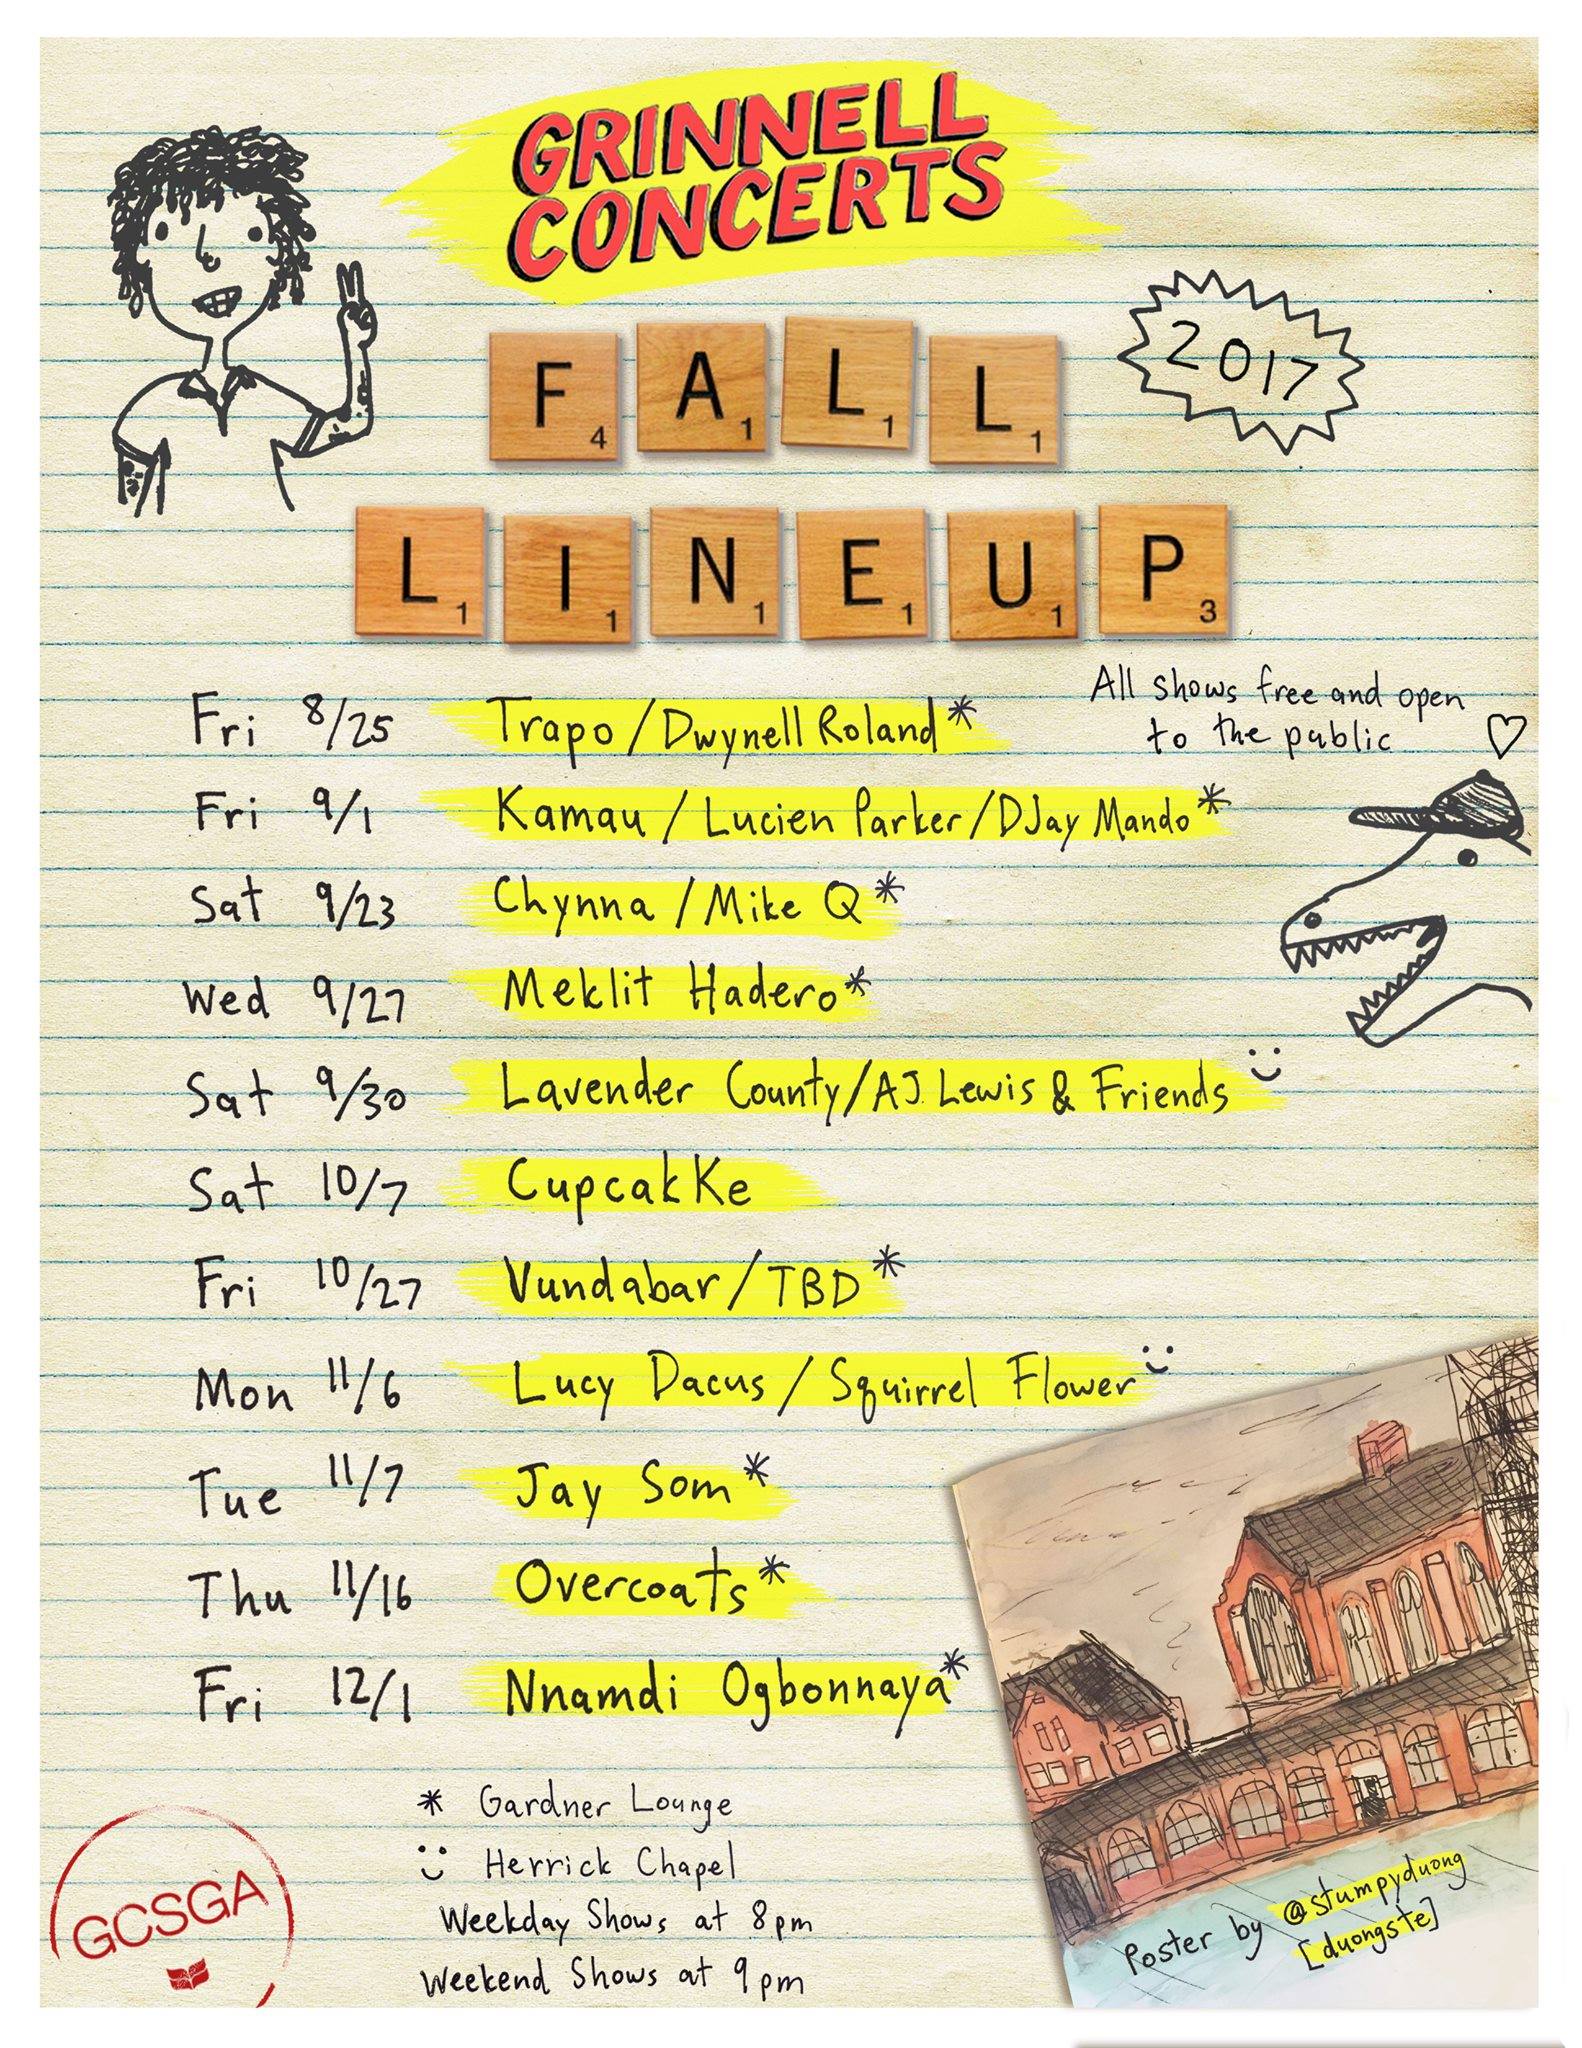 GRINNELL
CONCERTS
FALL
4 1 1 1
2017
LINEUP
1 1 1 1 1 3
All shows free and open
to the public
Fri 8/25 Trapo / Dwynell Roland *
Fri 9/1 Kamau / Lucien Parker / DJay Mando *
Sat 9/23 Chynna / Mike Q *
Wed 9/27 Meklit Hadero *
Sat 9/30 Lavender County / AJ Lewis & Friends
Sat 10/7 CupcakKe
Fri 10/27 Vundabar / TBD *
Mon 11/6 Lucy Dacus / Squirrel Flower
Tue 11/7 Jay Som *
Thu 11/16 Overcoats *
Fri 12/1 Nnamdi Ogbonnaya *
* Gardner Lounge
Herrick Chapel
Weekday Shows at 8pm
Weekend Shows at 9pm
GCSGA
Poster by @stumpyduong
[duongste]